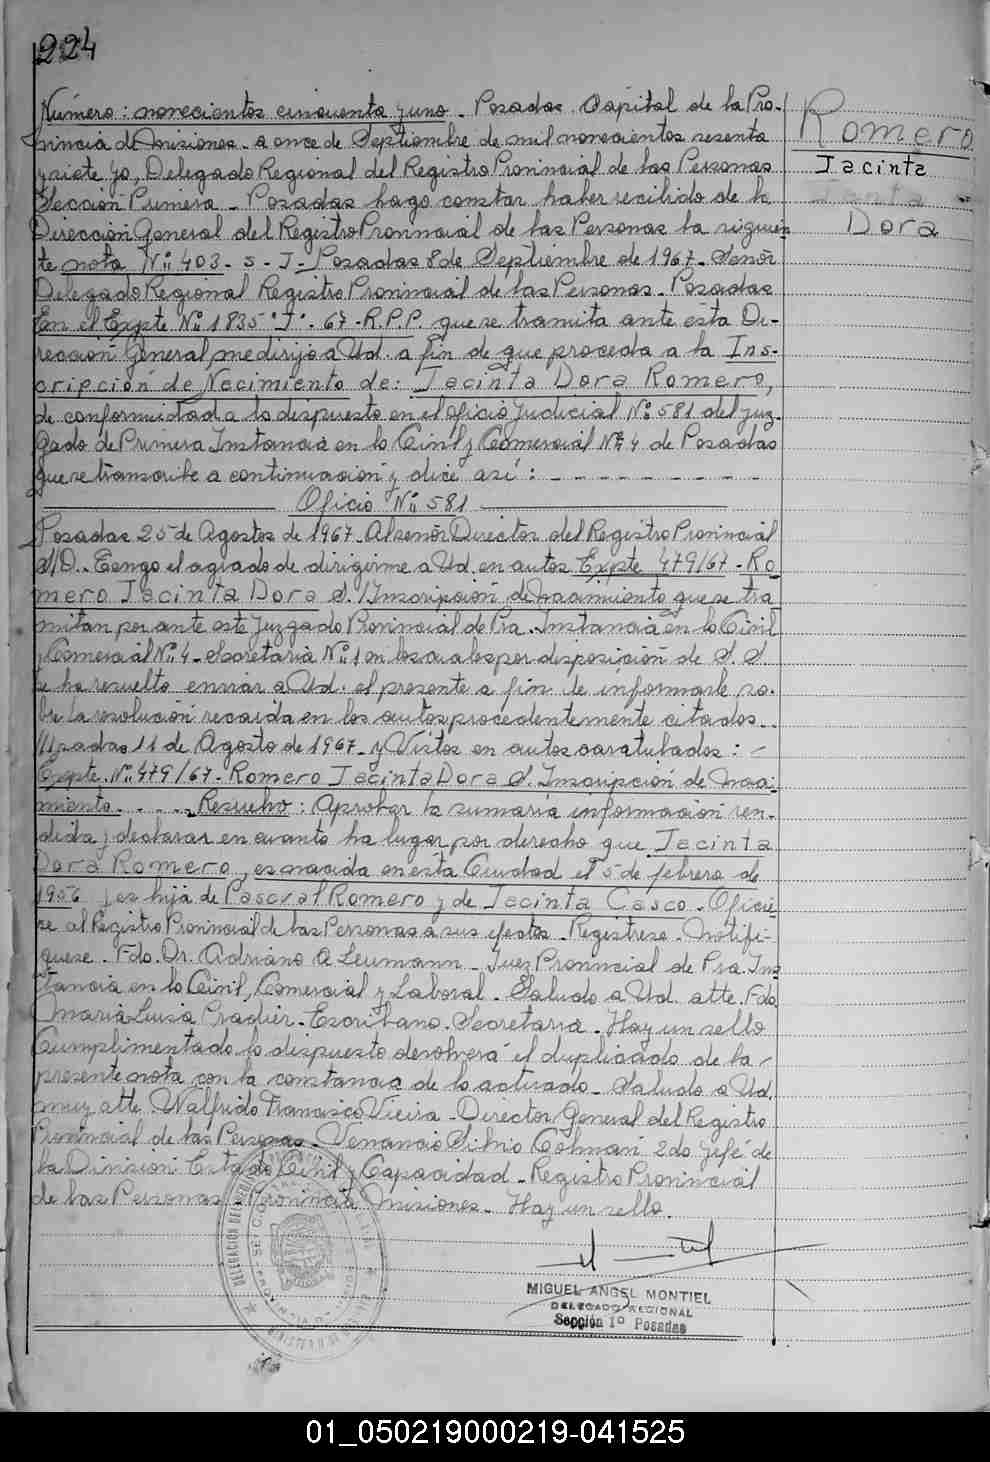 224
Número: novecientos cincuenta y uno. Posadas Capital de la Pro-
vincia de Misiones. a once de Septiembre de mil novecientos sesenta
y siete yo, Delegado Regional del Registro Provincial de las Personas
Sección Primera - Posadas hago constar haber recibido de la
Dirección General del Registro Provincial de las Personas la siguien
te nota Nº 403 - S - J - Posadas 8 de Septiembre de 1967. Señor
Delegado Regional Registro Provincial de las Personas - Posadas
En el Expte Nº 1835 "J" - 67 - R.P.P. que se tramita ante esta Di-
rección General, me dirijo a Ud. a fin de que proceda a la Ins-
cripción de Nacimiento de: Jacinta Dora Romero,
de conformidad a lo despuesto en el oficio Judicial Nº 581 del Juz-
gado de Primera Instancia en lo Civil y Comercial Nº 4 de Posadas
que se transcribe a continuación y dice así: - - - - - - - -
Oficio Nº 581
Posadas 25 de Agostos de 1967. Al señor Director del Registro Provincial
S/D. Tengo el agrado de dirigirme a Ud. en autos Expte 479/67 - Ro
mero Jacinta Dora S./Inscripción de nacimiento que se tra
mitan por ante este Juzgado Provincial de Pra. Instancia en lo Civil
y Comercial Nº 4 - Secretaria Nº 1 en los cuales por desposición de S. S.
se ha resuelto enviar a Ud. el presente a fin de informarle so-
bre la resolución recaída en los autos procedentemente citados.
Posadas 11 de Agosto de 1967 - y Vistos en autos caratulados: -
Expte. Nº 479/67 - Romero Jacinta Dora S. Inscripción de Naci-
miento. . . . Resuelvo: Aprobar la sumaria información ren-
dida y declarar en cuanto ha lugar por derecho que Jacinta
Dora Romero, es nacida en esta Ciudad el 5 de febrero de
1956 y es hija de Pascual Romero y de Jacinta Casco. Oficie
se al Registro Provincial de las Personas a sus efectos. Registrese. Notifi-
quese. Fdo. Dr. Adriano A Leumann - Juez Provincial de Pra Ins
tancia en lo Civil, Comercial y Laboral - Saludo a Ud. atte. Fdo
Maria Luisa Pradier. Escribano. Secretaria. Hay un sello
Cumplimentado lo dispuesto devolverá el duplicado de la
presente nota con la constancia de lo actuado - Saludo a Ud.
muy atte Walfrido Francisco Vieira - Director General del Registro
Provincial de las Personas - Venancio Silvio Colmán 2do Jefe de
la División Estado Civil y Capacidad - Registro Provincial
de las Personas - Provincia Misiones - Hay un sello.
Romero
Jacinta
Dora
MIGUEL ANGEL MONTIEL
DELEGADO REGIONAL
Sección 1º Posadas
01_050219000219-041525